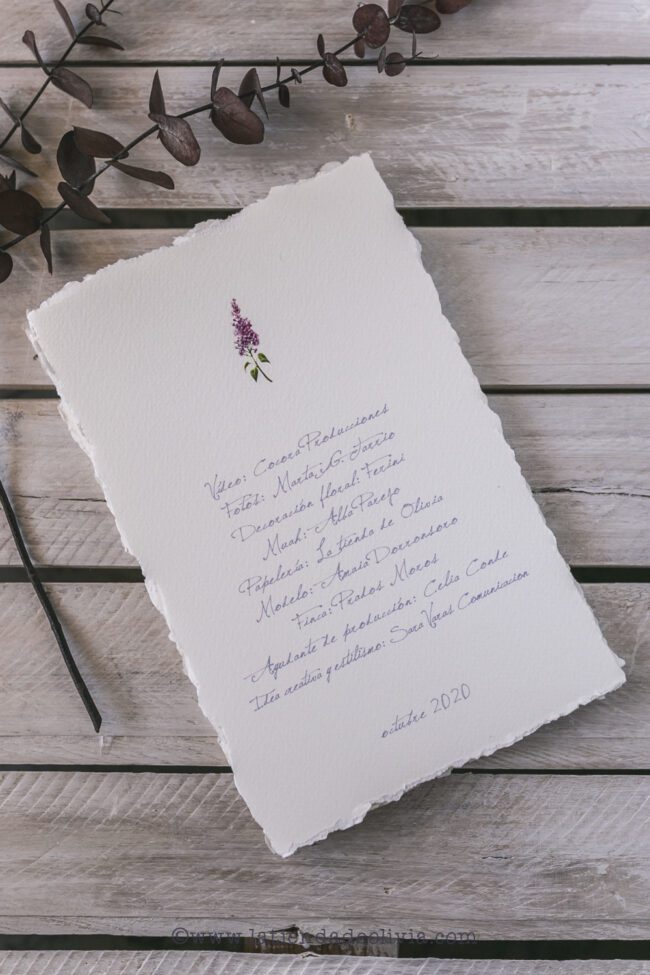 Vídeo: Cocora Producciones
Fotos: Marta G. Tarrio
Decoración floral: Ferini
Muah: Alba Parejo
Papelería: La tienda de Olivia
Modelo: Amaia Dorronsoro
Finca: Prados Moros
Ayudante de producción: Celia Conde
Idea creativa y estilismo: Sara Varas Comunicación
octubre 2020
©www.latiendadeolivia.com